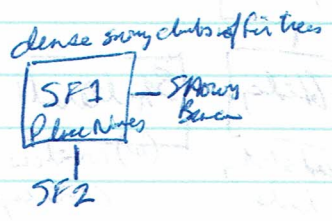 dense snowy clubs of fir trees
SF1
Place Names
Snowy
SF2